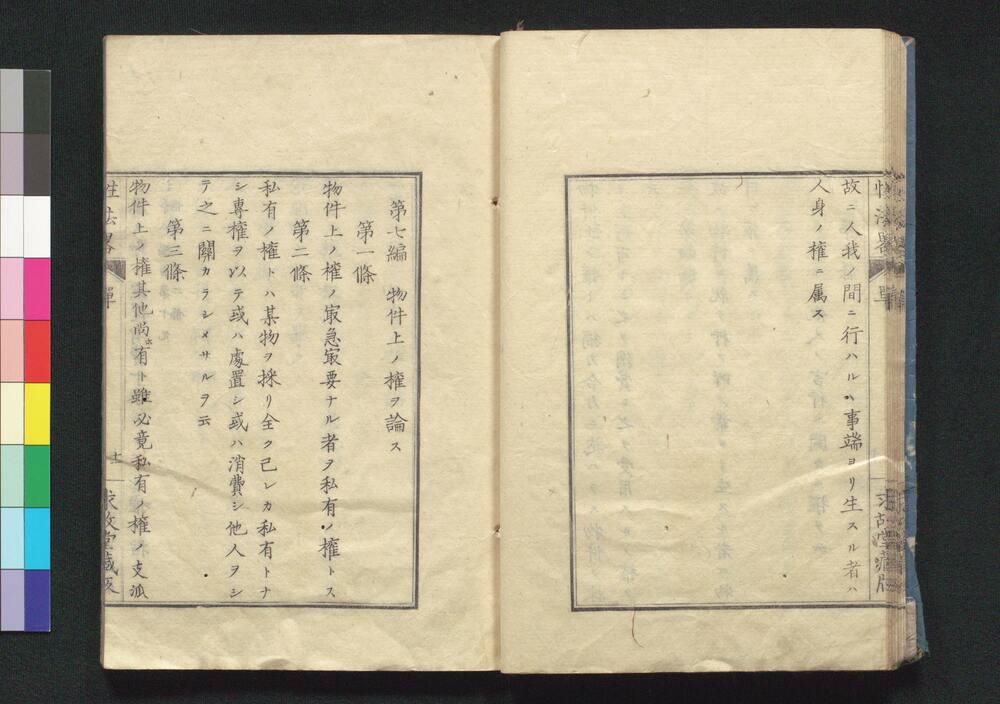 故ニ人我ノ間ニ行ハルヽ事端ヨリ生スル者ハ
人身ノ權ニ属ス
第七編 物件上ノ權ヲ論ス
第一條
物件上ノ權ノ㝡急㝡要ナル者ヲ私有ノ權トス
第二條
私有ノ權トハ某物ヲ採リ全ク己レカ私有トナ
シ專權ヲ以テ或ハ處置シ或ハ消費シ他人ヲシ
テ之ニ關カラシメサルヲ云
第三條
物件上ノ權其他尚ホ有ト雖必竟私有ノ權ノ支派
性法畧 單
十一
求故堂藏版